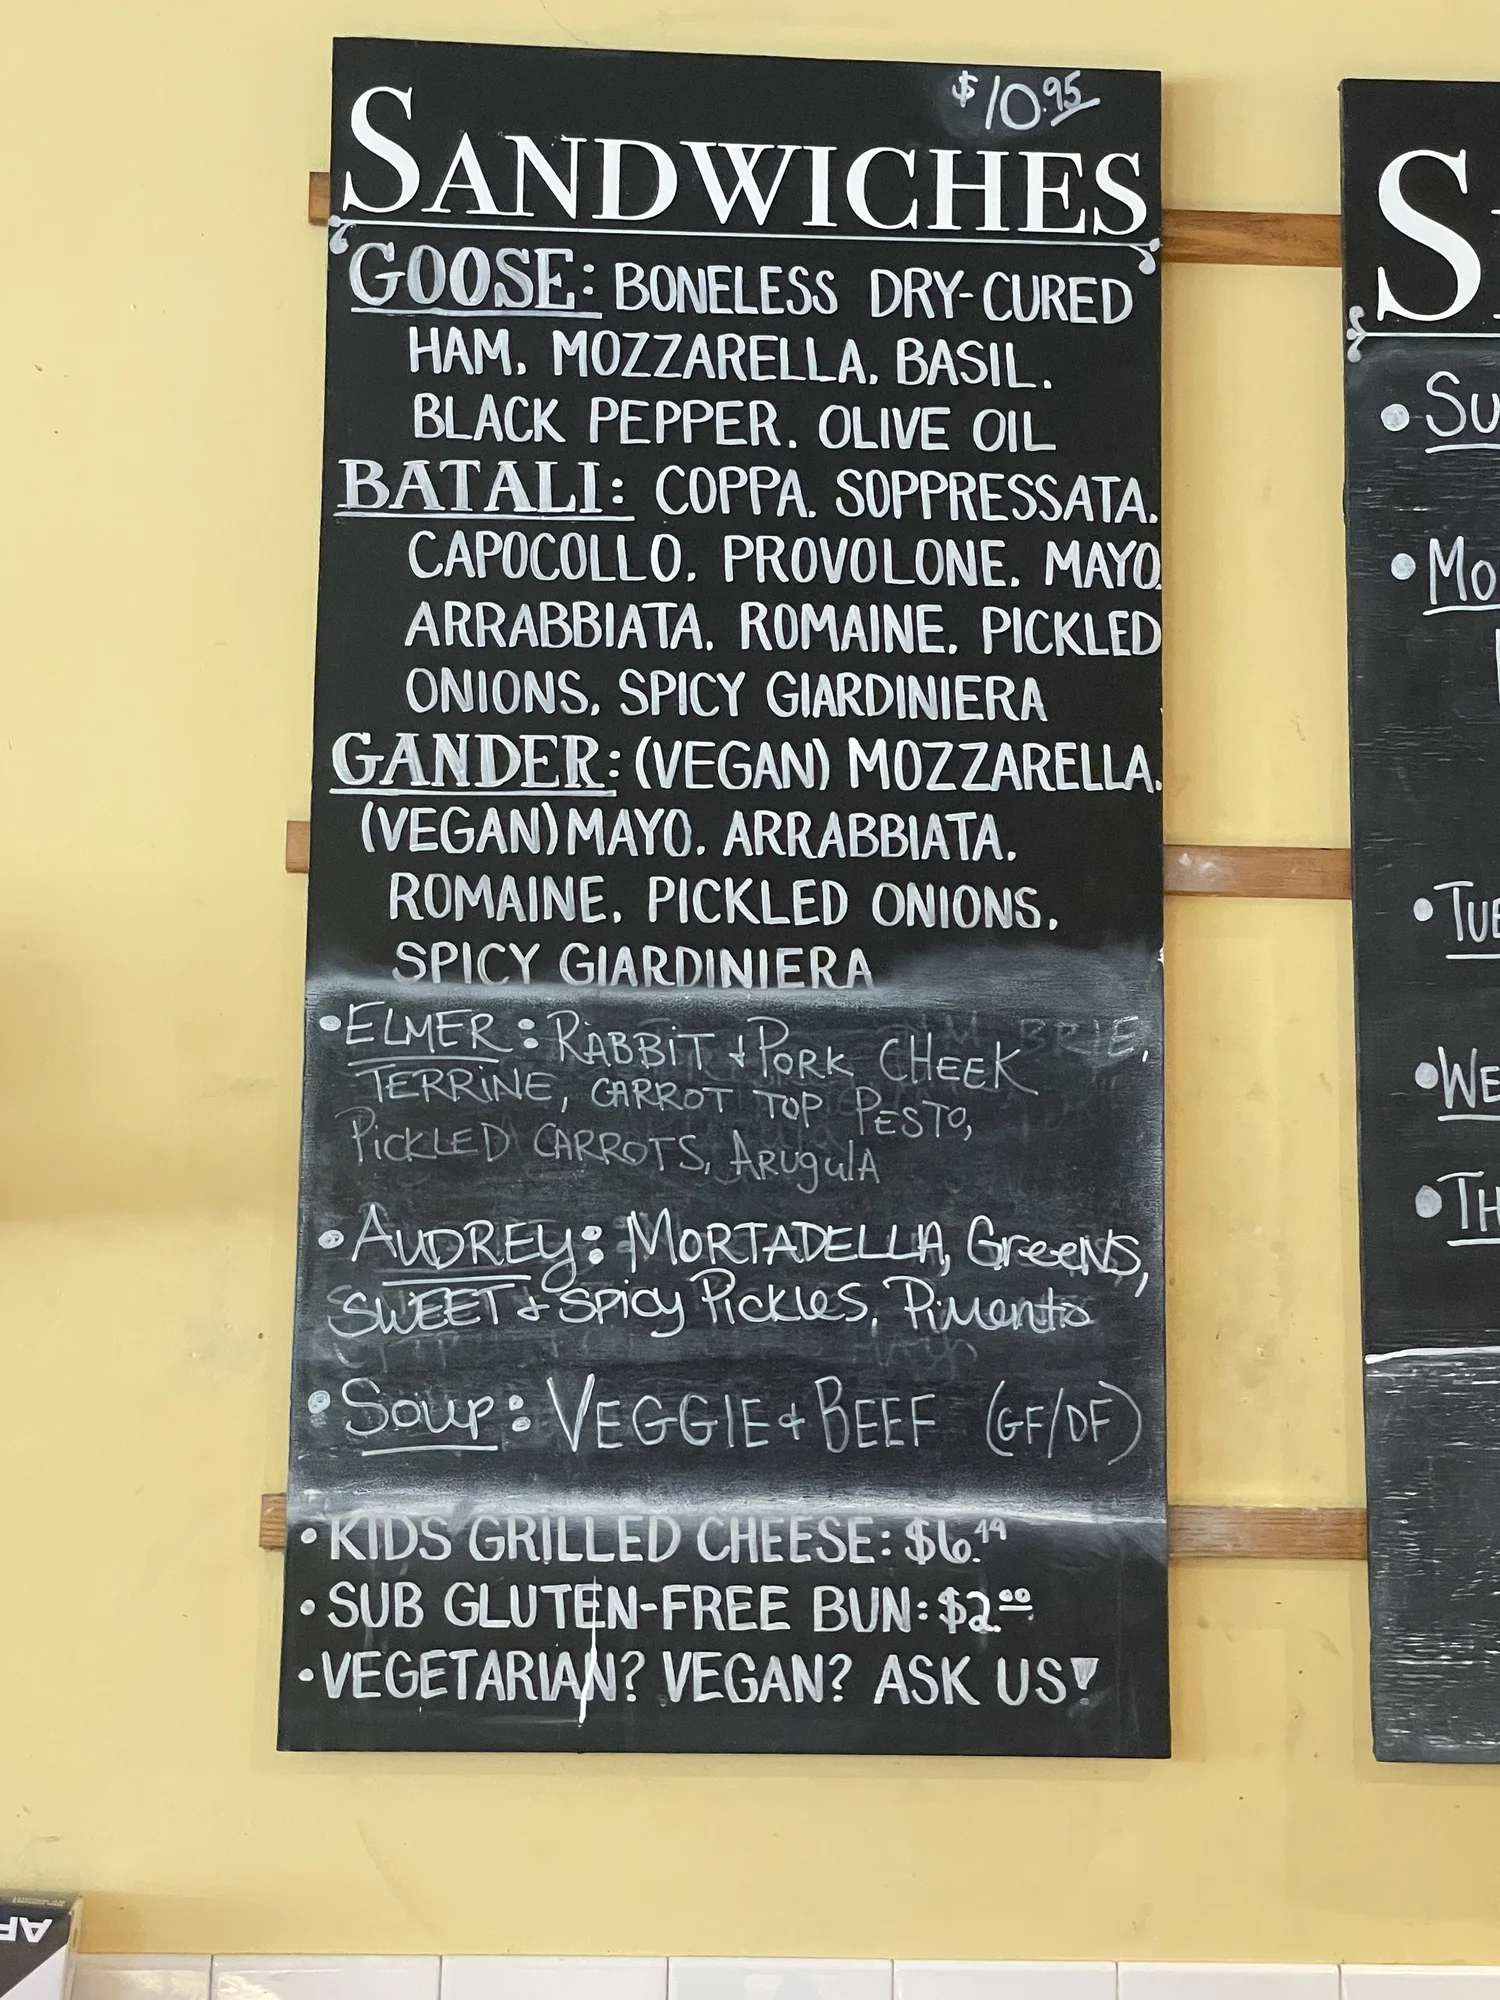 $10.95
SANDWICHES
GOOSE: BONELESS DRY-CURED
HAM, MOZZARELLA, BASIL,
BLACK PEPPER, OLIVE OIL
BATALI: COPPA, SOPPRESSATA,
CAPOCOLLO, PROVOLONE, MAYO
ARRABBIATA, ROMAINE, PICKLED
ONIONS, SPICY GIARDINIERA
GANDER: (VEGAN) MOZZARELLA,
(VEGAN) MAYO, ARRABBIATA,
ROMAINE, PICKLED ONIONS,
SPICY GIARDINIERA
• ELMER: RABBIT + PORK CHEEK
TERRINE, CARROT TOP PESTO,
PICKLED CARROTS, ARUGULA
• AUDREY: MORTADELLA, GREENS,
SWEET + SPICY PICKLES, PIMENTO
• SOUP: VEGGIE + BEEF (GF/DF)
• KIDS GRILLED CHEESE: $6.49
• SUB GLUTEN-FREE BUN: $2.00
• VEGETARIAN? VEGAN? ASK US!
S
• SU
• MO
• TUE
• WE
• TH